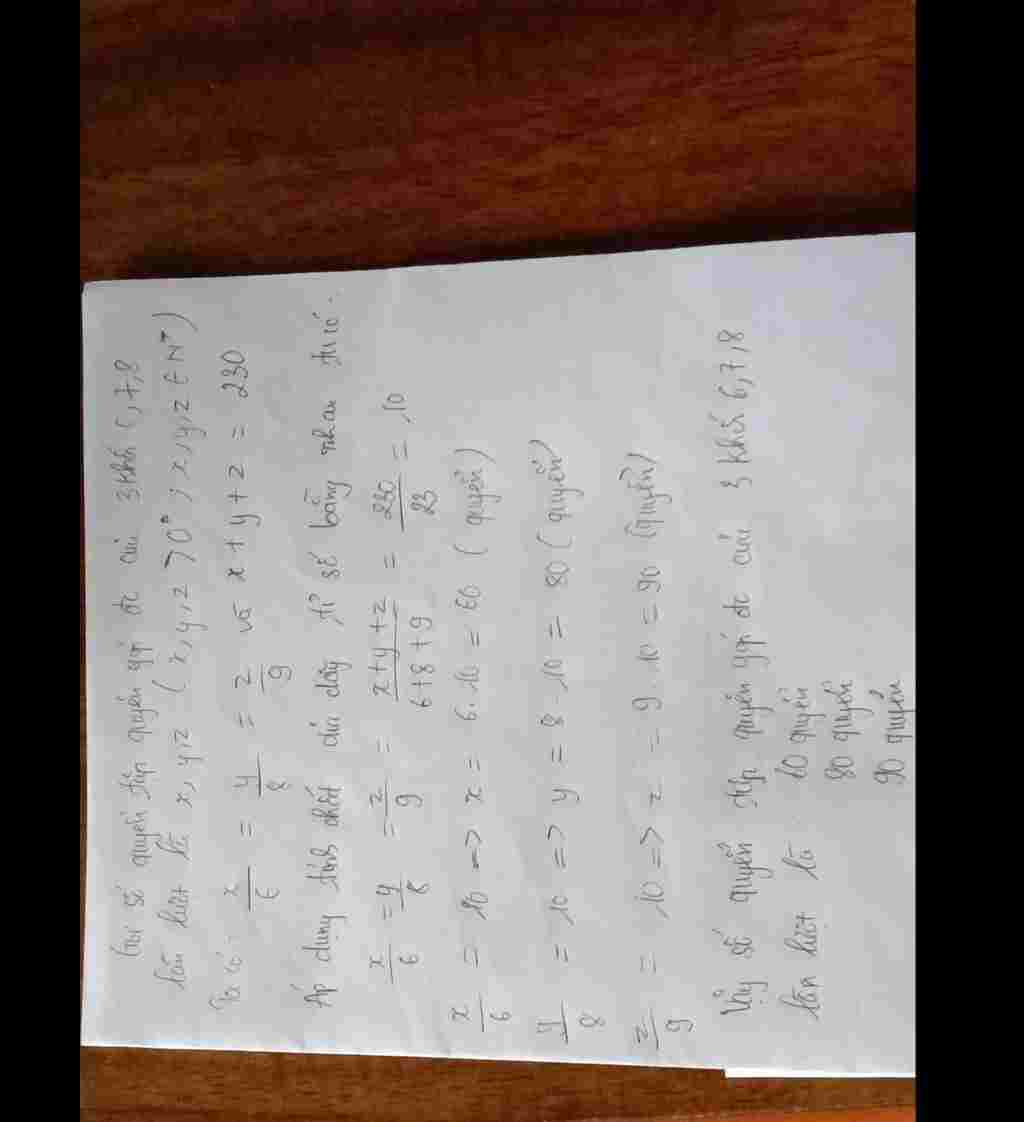 Gọi số quyển tập quyên góp đc của 3 khối 6,7,8
lần lượt là x, y, z ( x, y, z > 0 ; x, y, z ∈ N* )
Ta có: x/6 = y/8 = z/9 và x + y + z = 230
Áp dụng tính chất của dãy tỉ số bằng nhau ta có.
x/6 = y/8 = z/9 = (x+y+z)/(6+8+9) = 230/23 = 10
x/6 = 10 => x = 6.10 = 60 ( quyển )
y/8 = 10 => y = 8.10 = 80 ( quyển )
z/9 = 10 => z = 9.10 = 90 (quyển)
Vậy số quyển tập quyên góp đc của 3 khối 6,7,8
lần lượt là 60 quyển
80 quyển
90 quyển